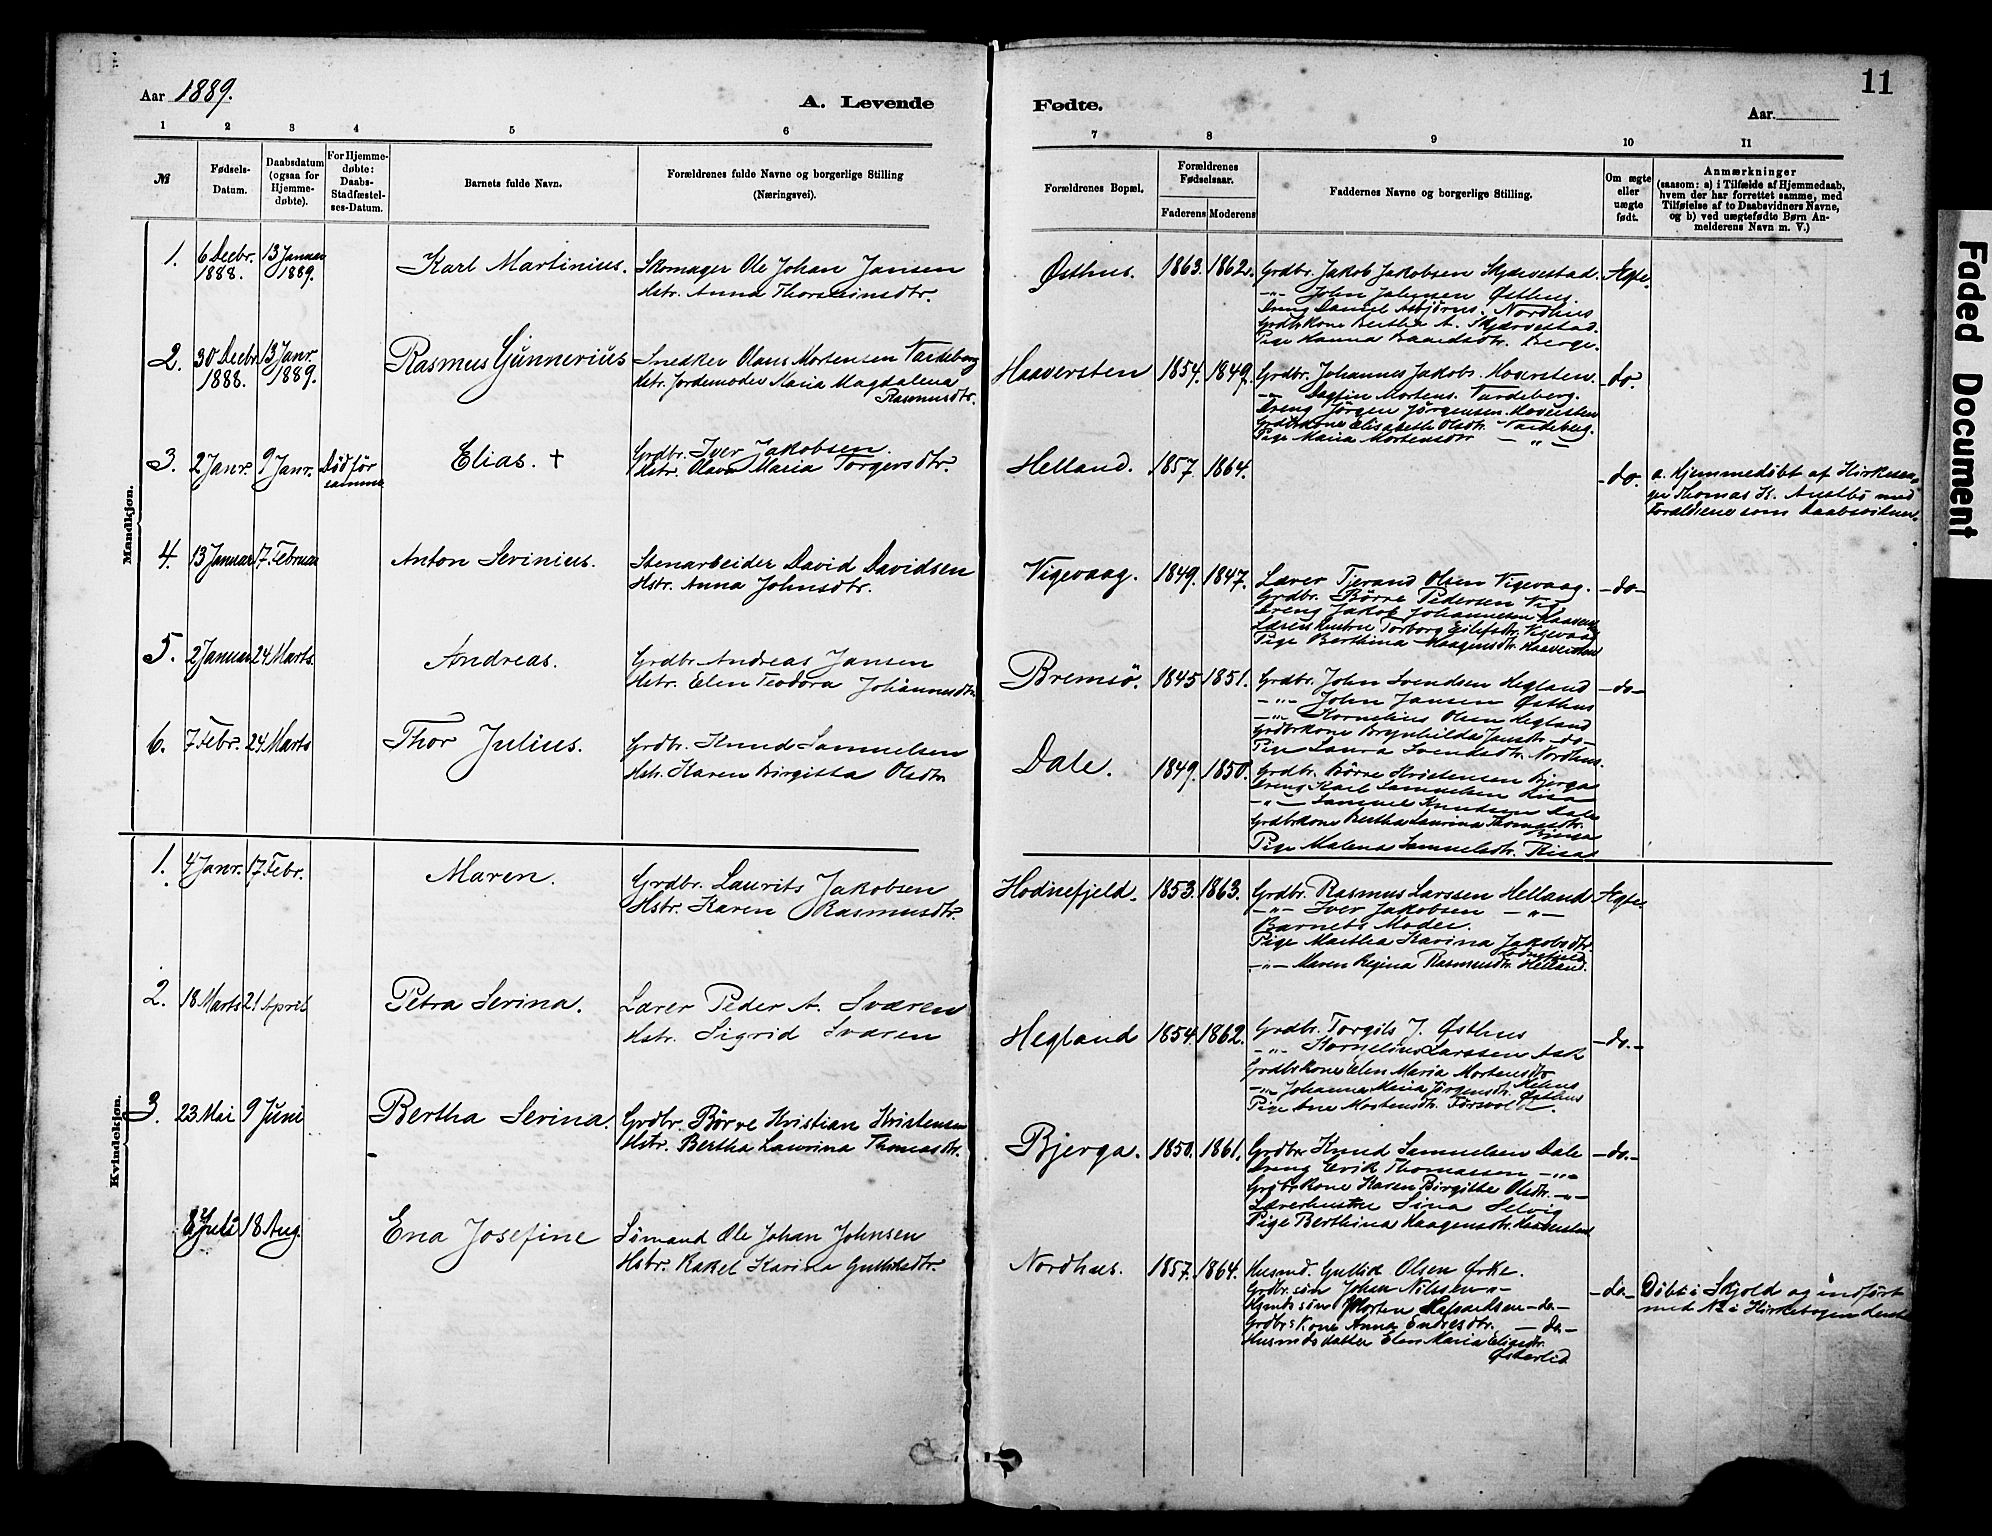 11
Aar 1889.
A. Levende
Fødte.
Aar.
1 2 3 4 5 6
7 8 9 10 11
№
Fødsels-
Datum.
Daabsdatum
(ogsaa for
Hjemme-
døbte).
For Hjemme-
døbte:
Daabs-
Stadfæstel-
ses-Datum.
Barnets fulde Navn.
Forældrenes fulde Navne og borgerlige Stilling
(Næringsvei).
Forældrenes Bopæl.
Forældrenes
Fødselsaar.
Faderens Moderens
Faddernes Navne og borgerlige Stilling.
Om ægte
eller
uægte
født.
Anmærkninger
(saasom: a) i Tilfælde af Hjemmedaab,
hvem der har forrettet samme, med
Tilføielse af to Daabsvidners Navne,
og b) ved uægtefødte Børn An-
melderens Navn m. V.)
Mandkjøn.
1. 6 Decbr. 1888. 13 Januar 1889. Karl Martinius.
Skomager Ole Johan Jansen
Hstr. Anna Thorsteinsdtr.
Østhus. 1863. 1862.
Grdbr. Jakob Jakobsen Skjærvestad.
-"- John Johnsen Østhus.
Dreng Daniel Asbjörns. Nordhus
Grdbrkone Bertha A. Skjærvestad.
Pige Hanna Baardsdtr. Berge.
Ægte.
2. 30 Decbr. 1888. 13 Janr. 1889. Rasmus Gunnerius
Snedker Olaus Mortensen Vardeberg
Hstr. Jordemoder Maria Magdalena
Rasmusdtr.
Haaversten 1854. 1849.
Grdbr. Johannes Jakobs. Hoversten.
-"- Dagfin Mortens. Vardeberg.
Dreng Jörgen Jörgensen Hoversten
Grdbrkone Elisabeth Olsdtr. Vardeberg.
Pige Maria Mortensdtr -"-
do.
3. 2 Janr. 9 Janr. Död för
samme
Elias. †
Grdbr. Iver Jakobsen.
Hstr. Olava Maria Torgersdtr.
Helland. 1857. 1864.
-do.
a. hjemmedöbt af Kirkesan-
ger Thomas K. Austbö med
Forældrene som Daabsvidner.
4. 13 Januar 17 Februar Anton Serinius.
Stenarbeider David Davidsen
Hstr. Anna Johnsdtr.
Vigevaag. 1849. 1847.
Lærer Tjerand Olsen Vigevaag.
Grdbr. Börre Pedersen Vig
Dreng Jakob Johannesen
Lærerhustru Torborg Eilefsdtr. Vigevaag
Pige Berthina Haagensdtr. Haaversten
-do-
5. 2 Januar 24 Marts. Andreas.
Grdbr. Andreas Jansen
Hstr. Elen Teodora Johannesdtr.
Bremsö. 1845 1851.
Grdbr. John Svendsen Hegland
-"- John Jansen Østhus
-"- Kornelius Olsen Hegland
Grdbrkone Brynhilda Jansdtr. -do-
Pige Laura Svendsdtr. Nordhus.
-do-
6. 7 Febr. 24 Marts Thor Julius.
Grdbr. Knud Samuelsen
Hstr. Karen Birgitta Olsdtr.
Dale. 1849. 1850.
Grdbr. Börre Kristensen Bjerga
Dreng Karl Samuelsen Risa
-"- Samuel Knudsen Dale
Grdbrkone Bertha Laurina Thomasdtr.
Bjerga
Pige Malena Samuelsdtr. Risa
Kvindekjøn.
1. 4 Janr. 17 Febr. Maren.
Grdbr. Laurits Jakobsen
Hstr. Karen Rasmusdtr.
Hodnefjeld. 1853. 1863.
Grdbr. Rasmus Larssen Helland
-"- Iver Jakobsen -"-
Barnets Moder.
Pige Martha Karina Jakobsdtr.
Hodnefjeld
-"- Maren Regina Rasmusdtr. Helland.
Ægte.
2. 18 Marts 21 April Petra Serina.
Lærer Peder A. Sværen
Hstr. Sigrid Sværen
Hegland 1854. 1862.
Grdbr. Torgils J. Østhus
-"- Kornelius Larssen Ask
Grdbrkone Elen Maria Mortensdtr
-"- Johanna Maria Jörgensdtr. Østhus
Pige Ane Mortensdtr. Försvold.
-do.-
3. 23 Mai 9 Juni Bertha Serina.
Grdbr. Börre Kristian Kristensen
Hstr. Bertha Laurina Thomasdtr.
Bjerga. 1850. 1861.
Grdbr. Knud Samuelsen Dale
Dreng Erik Thomassen -"-
Grdbrkone Karen Birgitte Olsdtr. -"-
Lærerhustru Sina Selvig
Pige Berthina Haagensdtr. Haaversten
-do.-
8 Juli 18 Aug. Ena Josefine
Sömand Ole Johan Johnsen
Hstr. Rakel Karina Gulliksdtr.
Nordhus. 1857. 1864.
Husmd. Gullik Olsen Ørke.
Grdbr.sön Johan Nilssen -"-
Husmdssön Morten -do-
Grdbr.kone Anna Endresdtr. -do-
Husmdsdatter Elen Maria Eliasdtr.
Østerlid
-do-
Döbt i Skjold og indført
med N. i Kirkebogen der
Faded Document